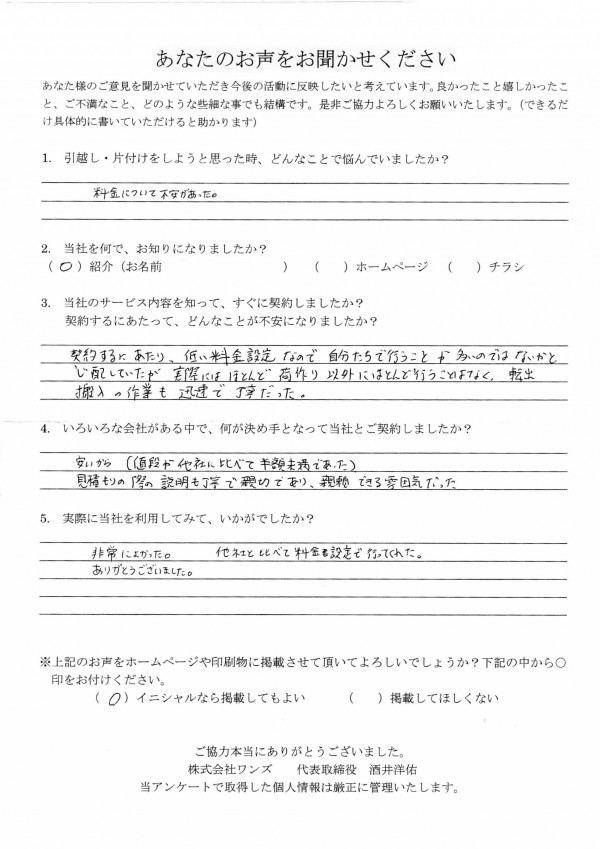 あなたのお声をお聞かせください
あなた様のご意見を聞かせていただき今後の活動に反映したいと考えています。良かったこと嬉しかったこ
と、ご不満なこと、どのような些細な事でも結構です。是非ご協力よろしくお願いいたします。（できるだ
け具体的に書いていただけると助かります）
1. 引越し・片付けをしようと思った時、どんなことで悩んでいましたか？
料金について不安があった。
2. 当社を何で、お知りになりましたか？
（ ○ ）紹介（お名前 ） （ ）ホームページ （ ）チラシ
3. 当社のサービス内容を知って、すぐに契約しましたか？
契約するにあたって、どんなことが不安になりましたか？
契約するにあたり、低い料金設定なので自分たちで行うことが多いのではないかと
心配していたが実際にはほとんど荷作り以外にほとんど行うことはなく、転出
搬入の作業も迅速で丁寧だった。
4. いろいろな会社がある中で、何が決め手となって当社とご契約しましたか？
安いから（値段が他社に比べて半額未満であった）
見積もりの際の説明も丁寧で親切であり、できる雰囲気だった
5. 実際に当社を利用してみて、いかがでしたか？
非常によかった。 他社と比べて料金設定で行ってくれた。
ありがとうございました。
※上記のお声をホームページや印刷物に掲載させて頂いてよろしいでしょうか？下記の中から○
印をお付けください。
（ ○ ）イニシャルなら掲載してもよい （ ）掲載してほしくない
ご協力本当にありがとうございました。
株式会社ワンズ 代表取締役 酒井洋佑
当アンケートで取得した個人情報は厳正に管理いたします。